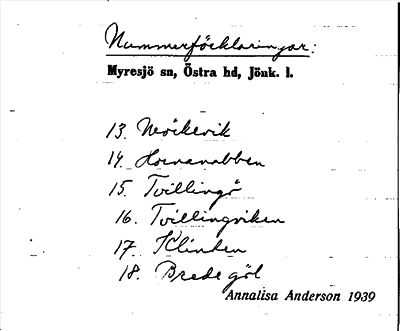 Nummerförklaringar:
Myresjö sn, Östra hd, Jönk. l.
13. Mörkevik
14. Hornanabben
15. Tvillingö
16. Tvillingviken
17. Klinten
18. Brede göl
Annalisa Anderson 1939